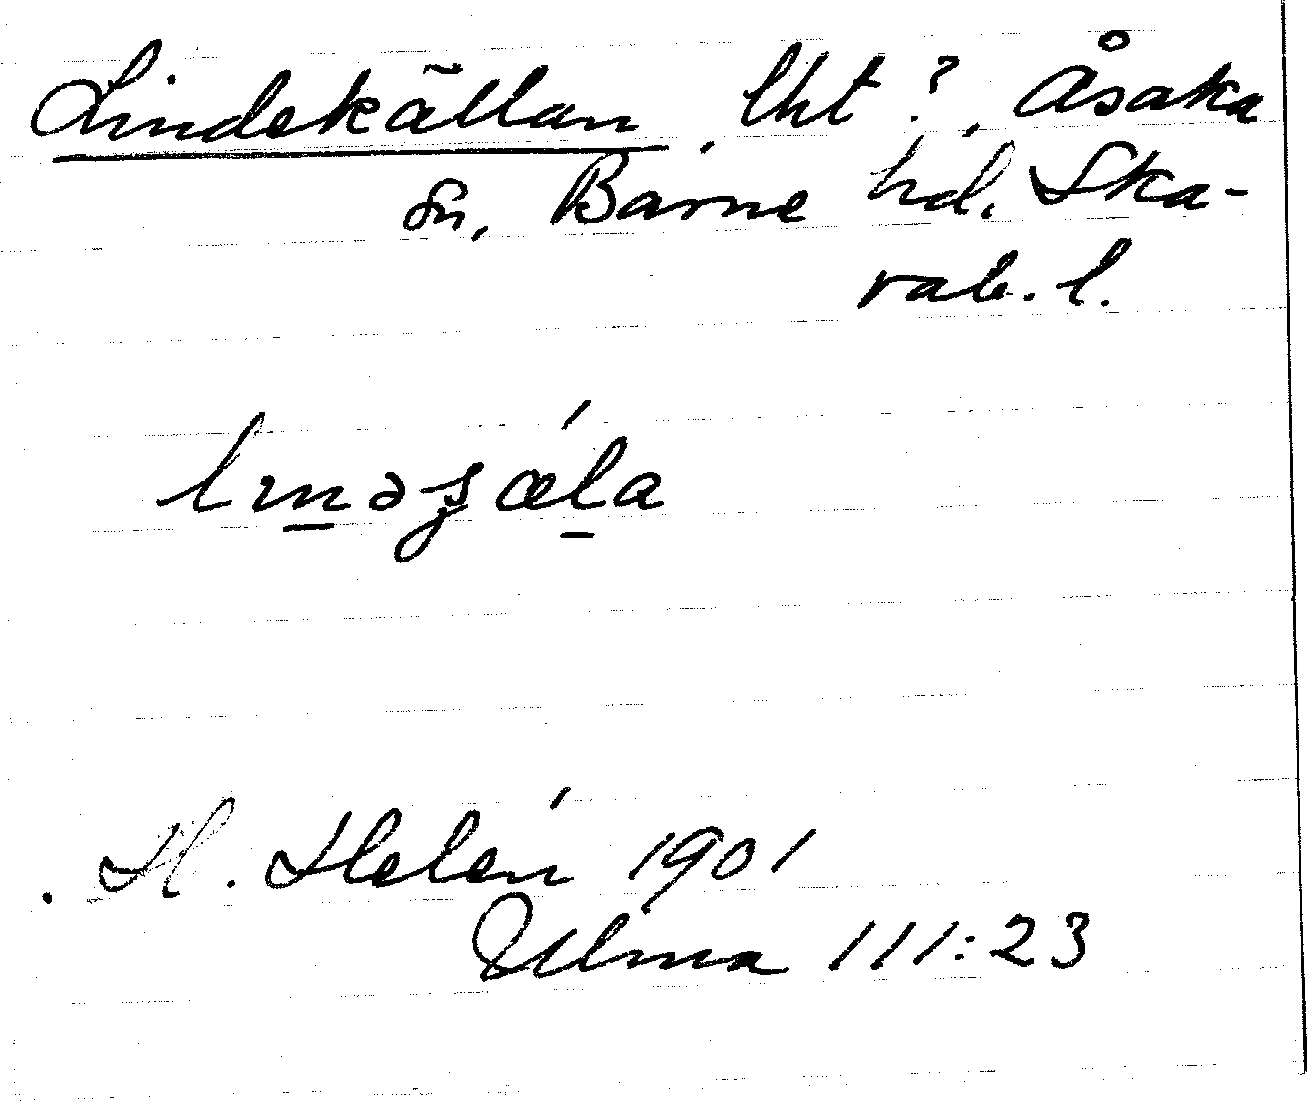 Lindekällan, lht?, Åsaka
sn, Barne hd. Ska-
rab. l.
H. Helén 1901
Ulma 111:23